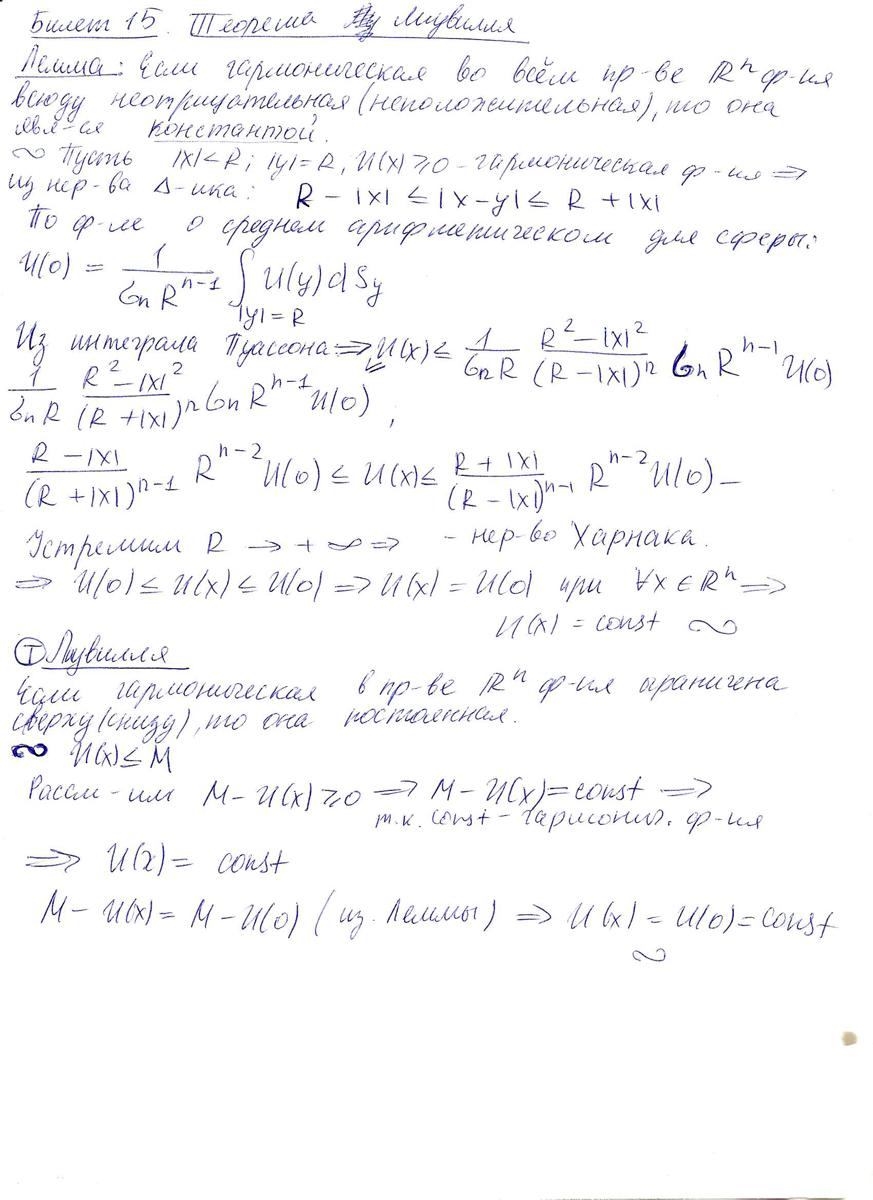 Билет 15. Теорема Лиувилля
Лемма: Если гармоническая во всём пр-ве ℝⁿ ф-ия
всюду неотрицательная (неположительная), то она
явл-ся константой.
∾ Пусть |x|<R; |y|=R, U(x)≥0 - гармоническая ф-ия ⇒
из нер-ва Δ-ика: R-|x| ≤ |x-y| ≤ R+|x|
По ф-ле о среднем арифметическом для сферы:
U(0) = 1/(σₙRⁿ⁻¹) ∫_{|y|=R} U(y)dS_y
Из интеграла Пуассона ⇒ U(x) ≤ 1/(σₙR) (R²-|x|²)/(R-|x|)ⁿ σₙRⁿ⁻¹ U(0)
1/(σₙR) (R²-|x|²)/(R+|x|)ⁿ σₙRⁿ⁻¹ U(0) ,
(R-|x|)/(R+|x|)ⁿ⁻¹ Rⁿ⁻² U(0) ≤ U(x) ≤ (R+|x|)/(R-|x|)ⁿ⁻¹ Rⁿ⁻² U(0) -
Устремим R → +∞ ⇒ - нер-во Харнака.
⇒ U(0) ≤ U(x) ≤ U(0) ⇒ U(x) = U(0) при ∀x∈ℝⁿ ⇒
U(x) = const ∾
Ⓣ Лиувилля
Если гармоническая в пр-ве ℝⁿ ф-ия ограничена
сверху (снизу), то она постоянная.
∾ U(x) ≤ M
Рассм-им M-U(x)≥0 ⇒ M-U(x)=const ⇒
т.к. const - гармонич. ф-ия
⇒ U(x) = const
M-U(x) = M-U(0) (из Леммы) ⇒ U(x) = U(0) = const
∾